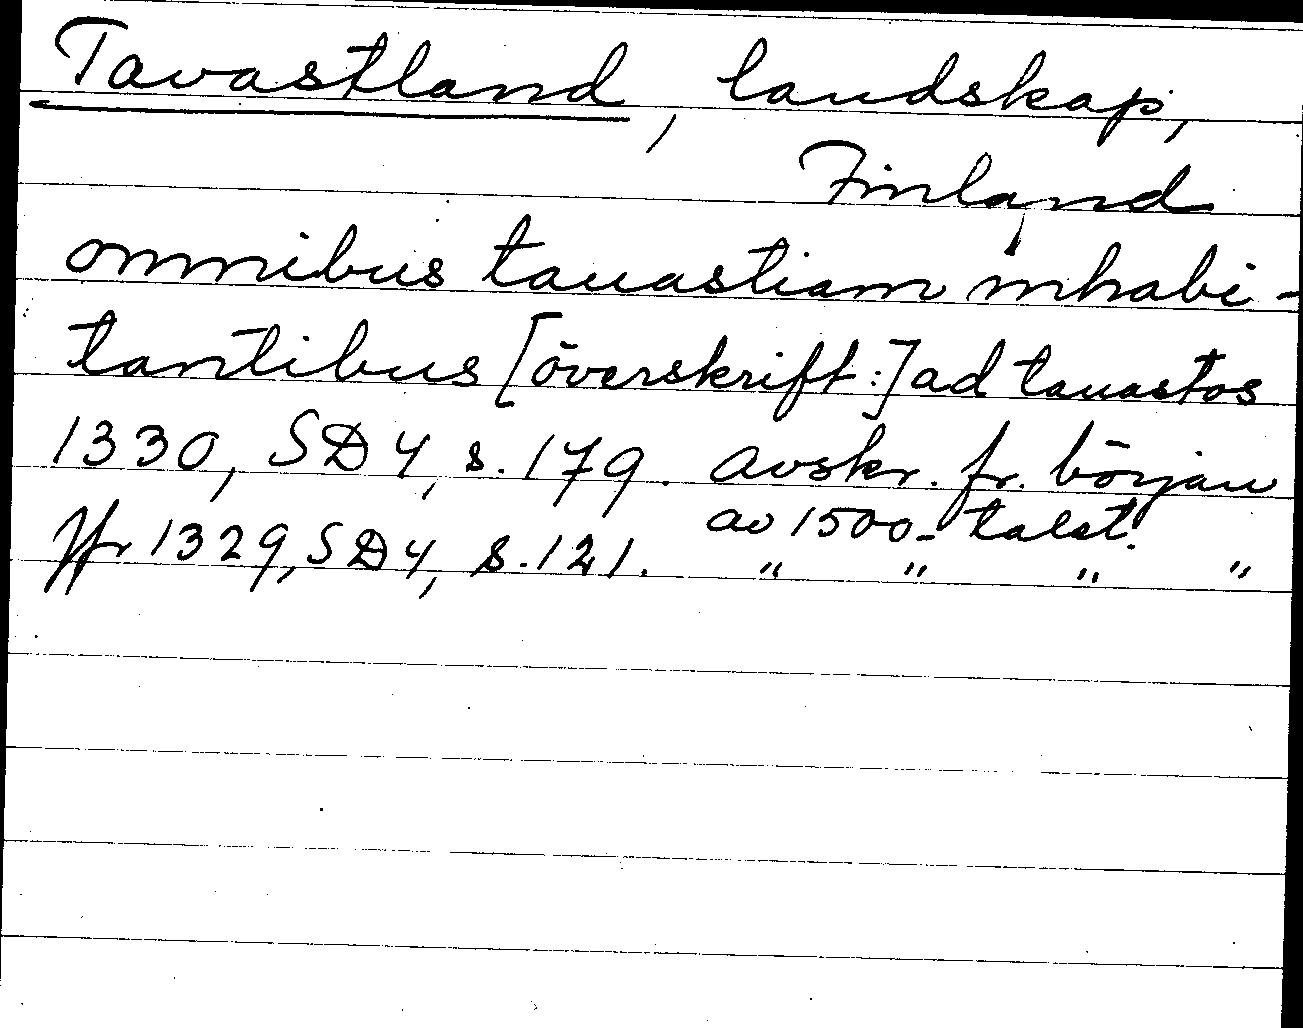 Tavastland, landskap,
Finland
omnibus tauastiam inhabi-
tantibus [överskrift:] ad tauastos
1330, SD 4, s. 179. avskr. fr. början
av 1500-talet.
Jfr 1329, SD 4, s. 121. " " " "